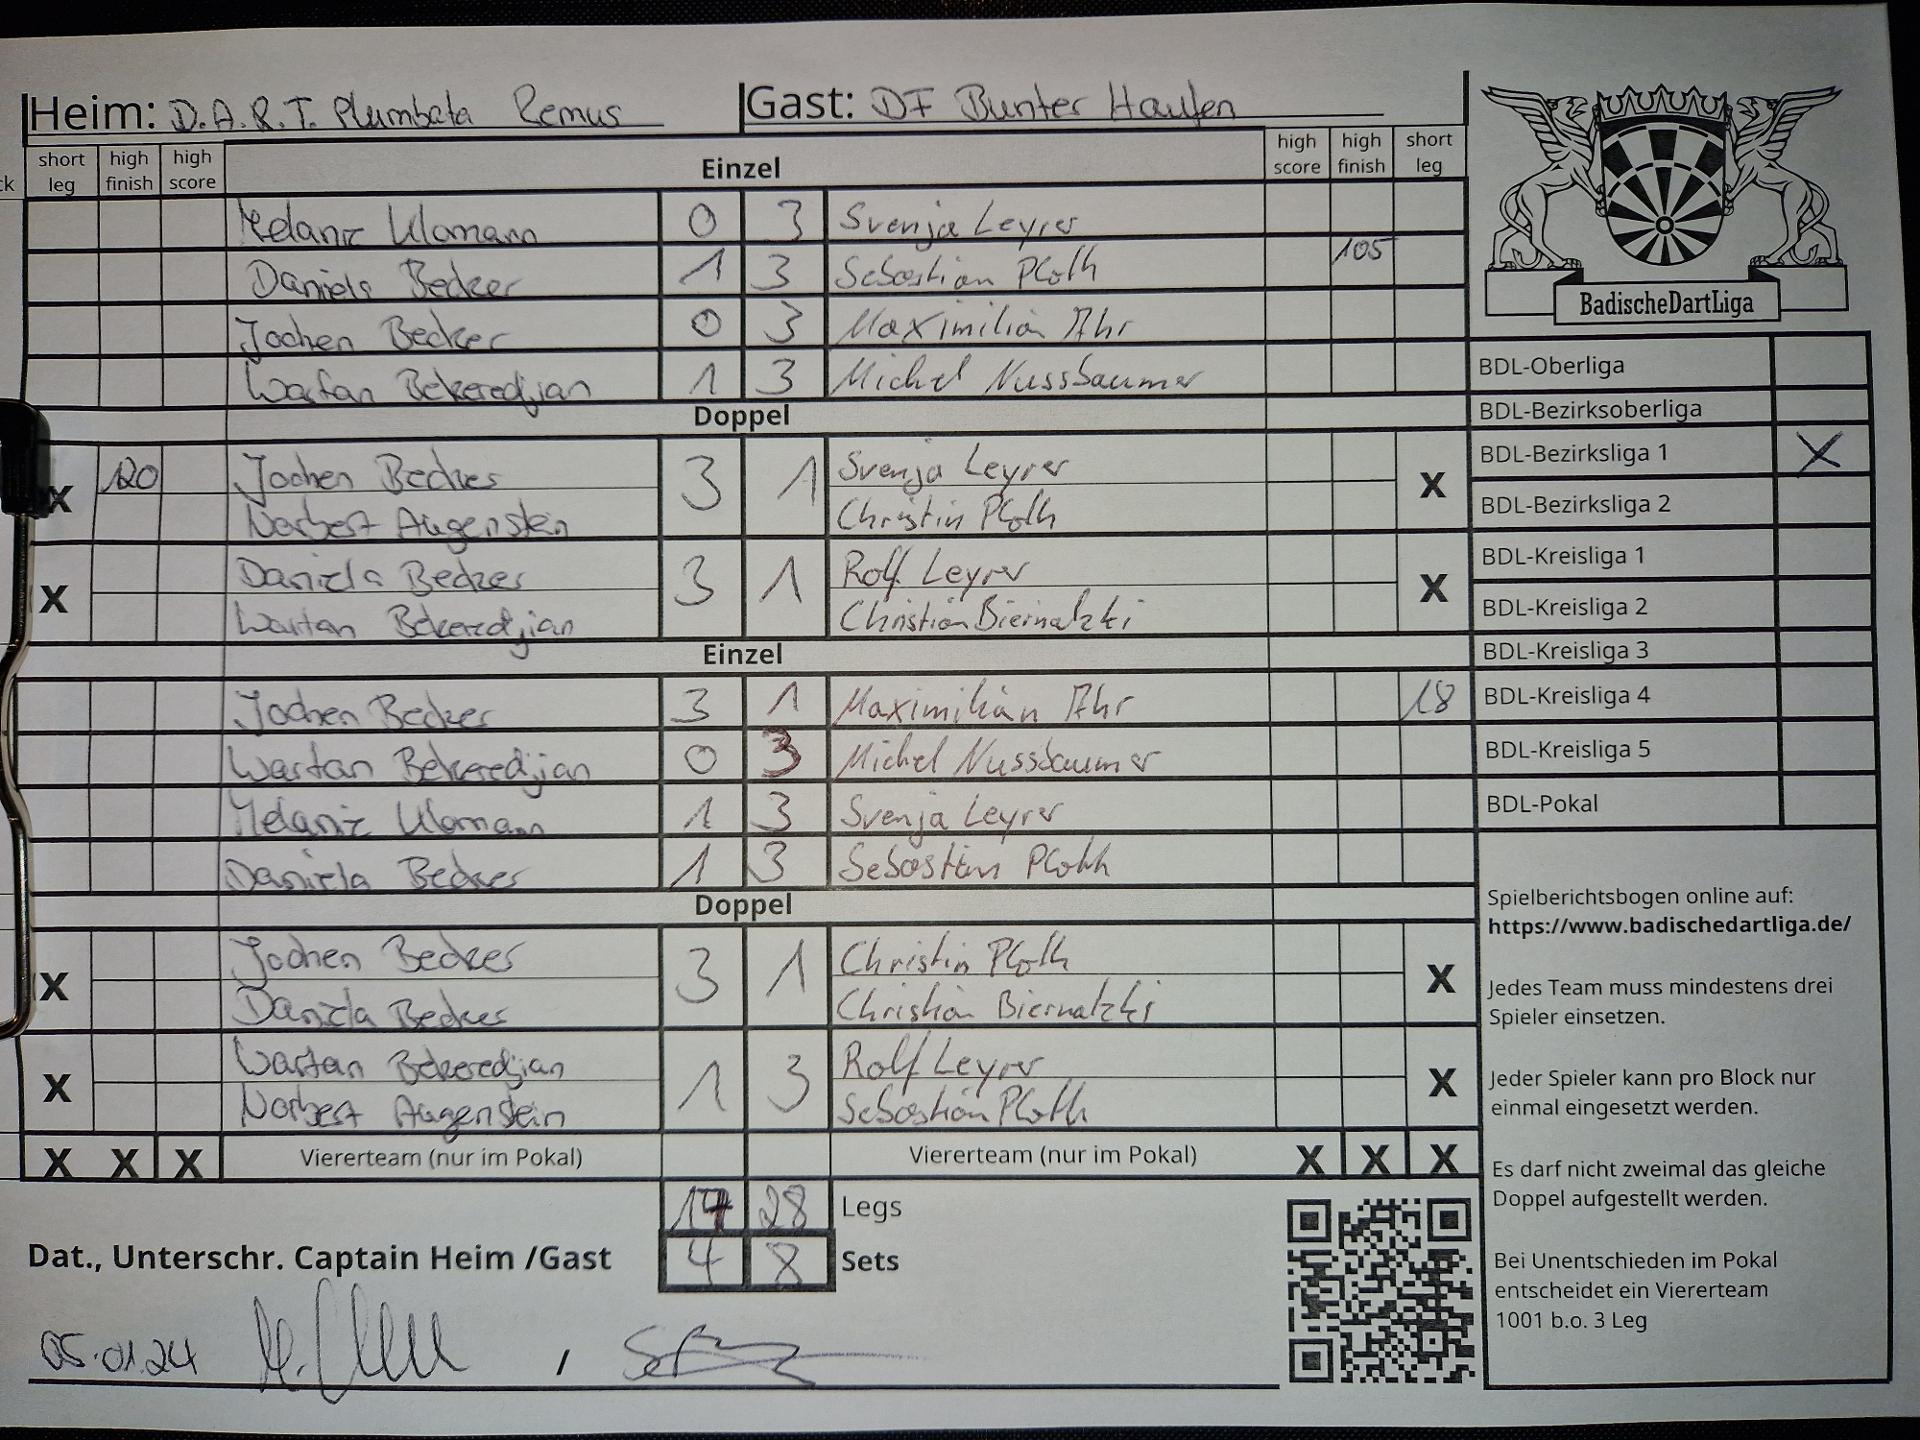 Heim: D.A.R.T. Plumbata Remus Gast: DF Bunter Haufen
short leg high finish high score Einzel high score high finish short leg
Melanie Ulamann 0 3 Svenja Leyrer
Daniela Becker 1 3 Sebastian Ploth 105
Jochen Becker 0 3 Maximilian Ahr
Wartan Bekeredjian 1 3 Michel Nussbaumer
Doppel
X 120 Jochen Becker 3 1 Svenja Leyrer X
Norbert Augenstein Christin Ploth
X Daniela Becker 3 1 Rolf Leyrer X
Wartan Bekeredjian Christian Biernatzki
Einzel
Jochen Becker 3 1 Maximilian Ahr 18
Wartan Bekeredjian 0 3 Michel Nussbaumer
Melanie Ulamann 1 3 Svenja Leyrer
Daniela Becker 1 3 Sebastian Ploth
Doppel
X Jochen Becker 3 1 Christin Ploth X
Daniela Becker Christian Biernatzki
X Wartan Bekeredjian 1 3 Rolf Leyrer X
Norbert Augenstein Sebastian Ploth
X X X Viererteam (nur im Pokal) Viererteam (nur im Pokal) X X X
17 28 Legs
Dat., Unterschr. Captain Heim /Gast 4 8 Sets
05.01.24 /
BadischeDartLiga
BDL-Oberliga
BDL-Bezirksoberliga
BDL-Bezirksliga 1 X
BDL-Bezirksliga 2
BDL-Kreisliga 1
BDL-Kreisliga 2
BDL-Kreisliga 3
BDL-Kreisliga 4
BDL-Kreisliga 5
BDL-Pokal
Spielberichtsbogen online auf:
https://www.badischedartliga.de/
Jedes Team muss mindestens drei
Spieler einsetzen.
Jeder Spieler kann pro Block nur
einmal eingesetzt werden.
Es darf nicht zweimal das gleiche
Doppel aufgestellt werden.
Bei Unentschieden im Pokal
entscheidet ein Viererteam
1001 b.o. 3 Leg